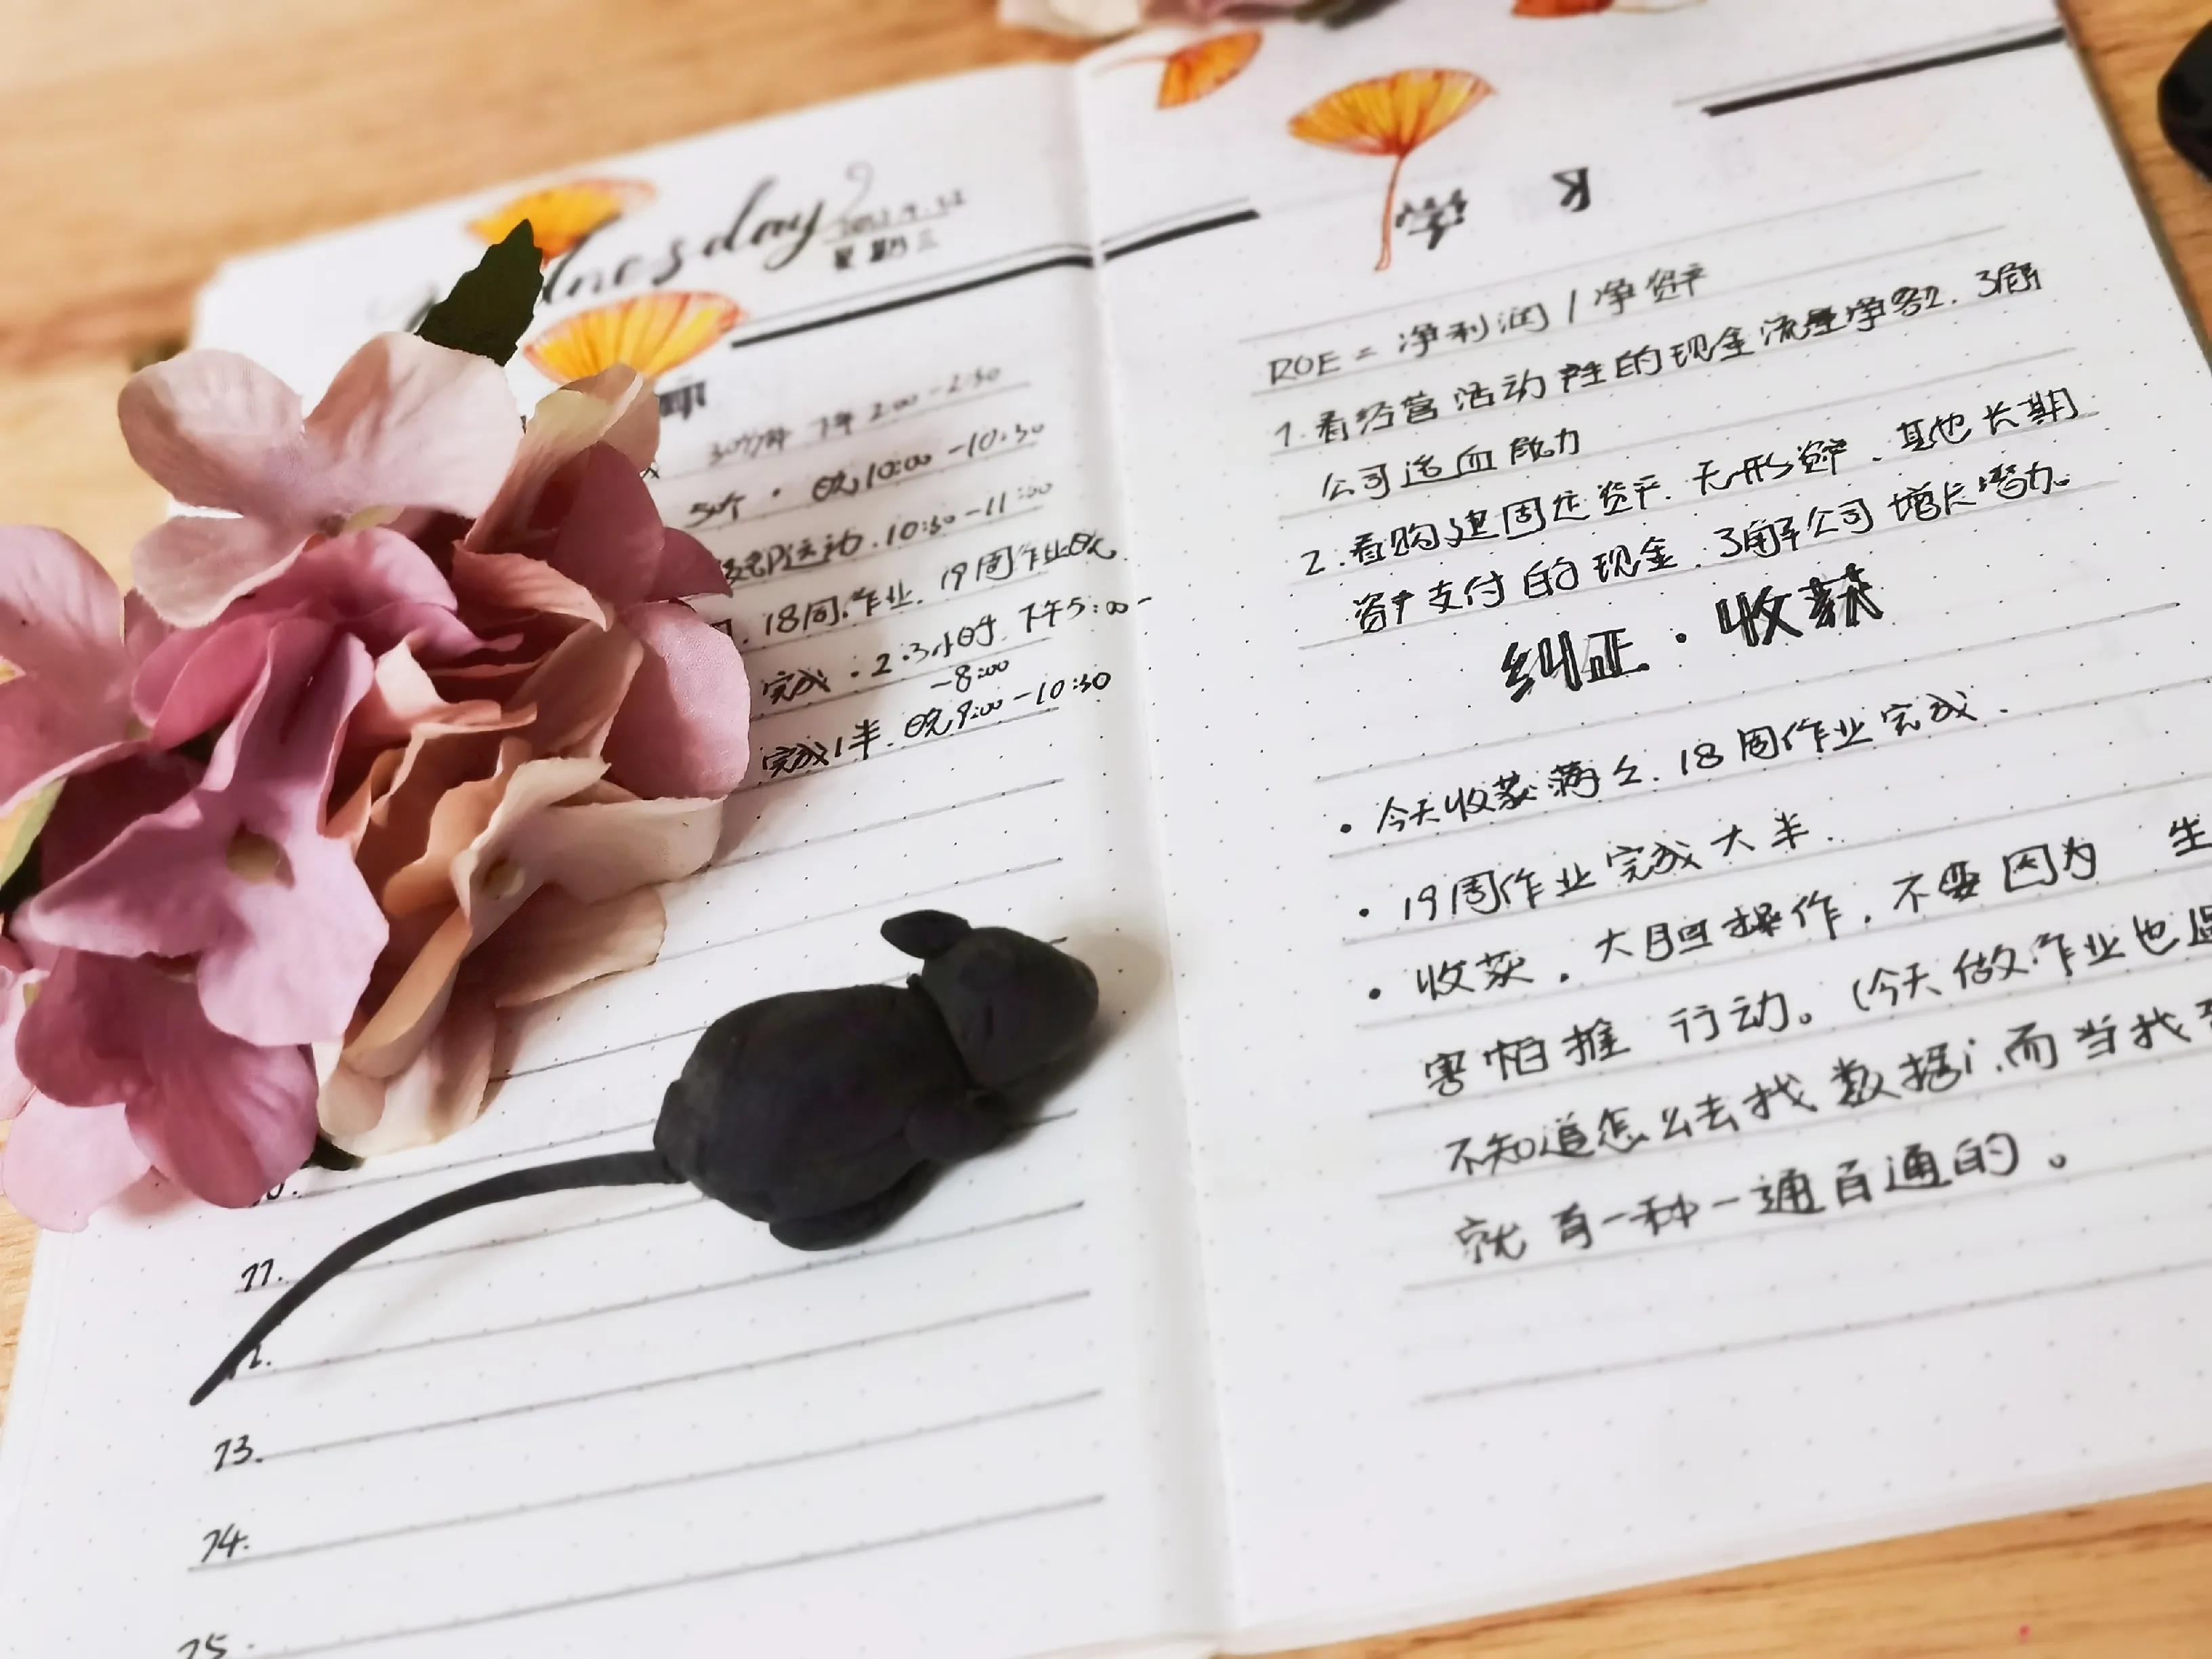 Wednesday
星期三
30分钟 下午 2:00-2:30
50个 · 晚10:00-10:30
运动. 10:30-11:00
18周作业. 19周作业晚
完成. 2.3小时. 下午5:00-
-8:00
完成1半. 晚9:00-10:30
11.
13.
14.
15.
学 习
ROE = 净利润 / 净资产
1. 看经营活动产生的现金流量净额. 了解
公司造血能力
2. 看购建固定资产. 无形资产. 其他长期
资产支付的现金. 了解公司增长潜力。
纠正 · 收获
· 今天收获满满. 18周作业完成.
· 19周作业完成大半.
· 收获. 大胆操作. 不要因为
害怕 行动。(今天做作业也
不知道怎么去找数据. 而当找
就有一种一通百通的。